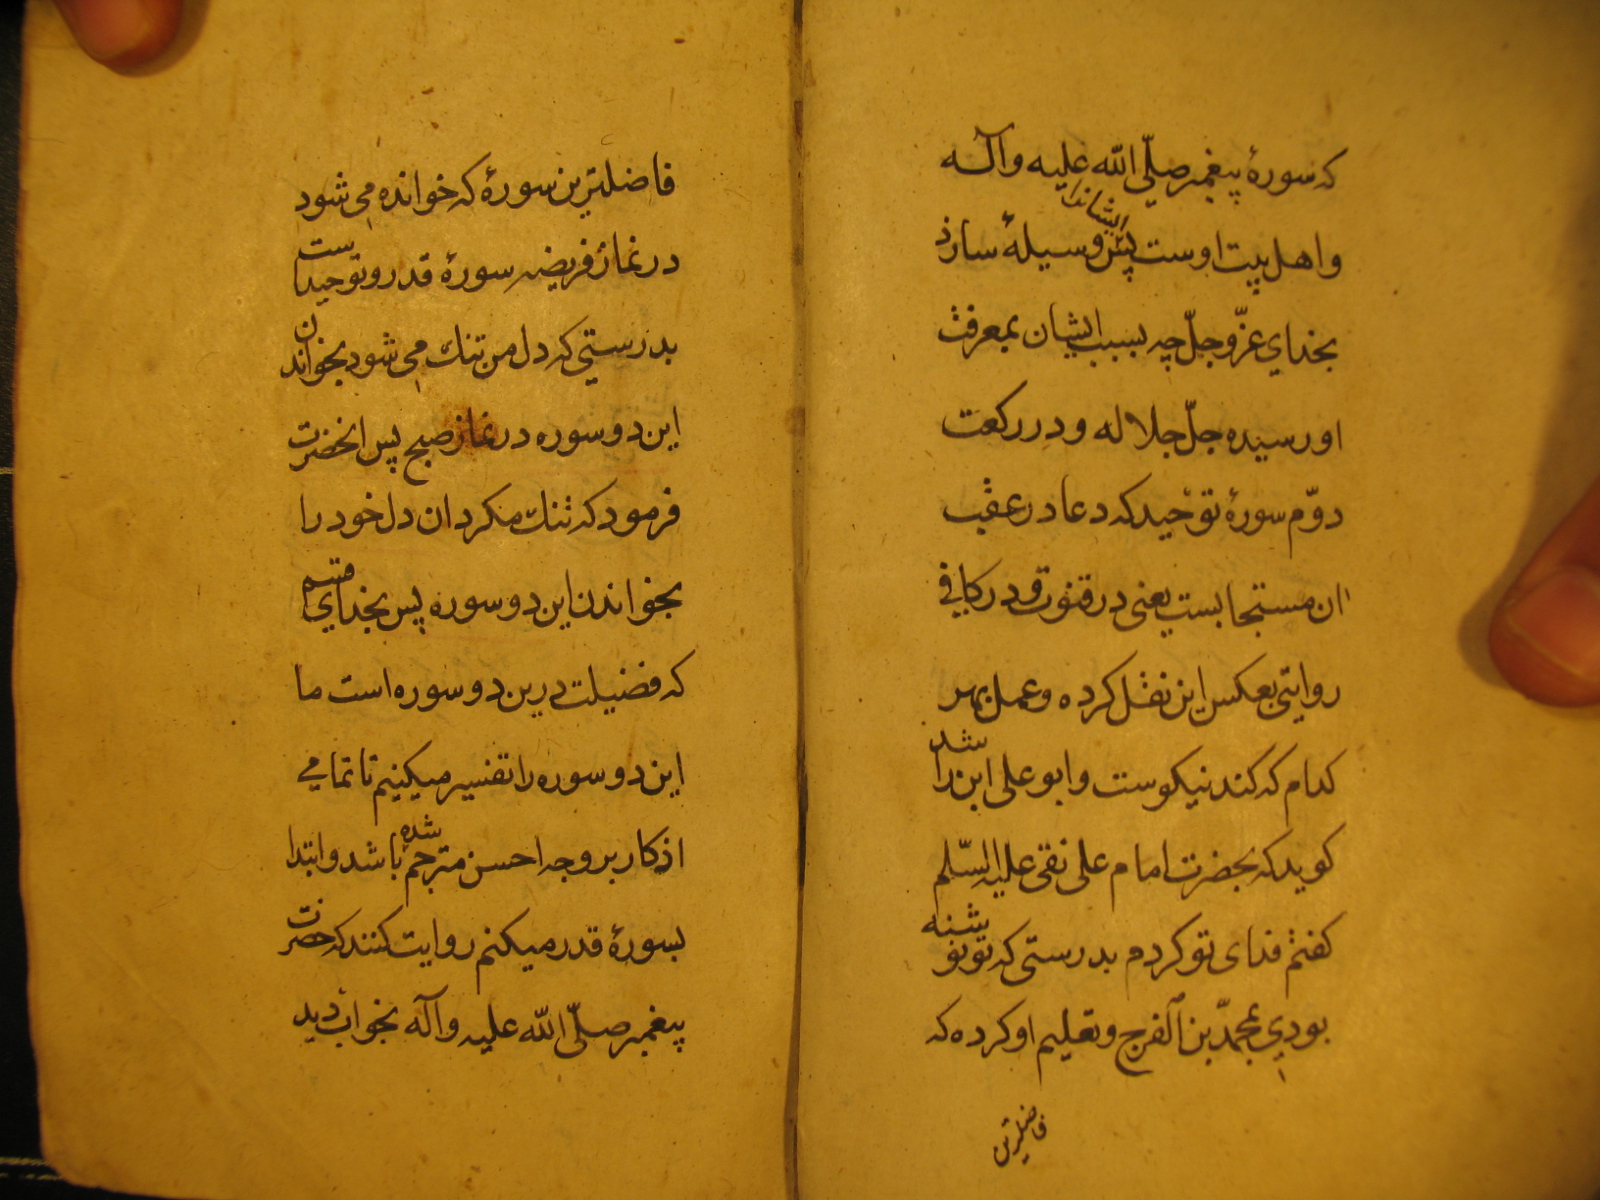 که سورهٔ پیغمبر صلّی الله علیه وآله
واهل بیت اوست پس ایشانرا وسیلهٔ سازد
بخدای عزّ وجلّ چه بسبب ایشان بمعرفت
او رسیده جلّ جلاله و در رکعت
دوّم سورهٔ توحید که دعا در عقب
ان مستجابست یعنی در قنوت و در کافی
روایتی بعکس این نقل کرده و عمل بهر
کدام که کند نیکوست و ابو علی ابن راشد
کوید که بحضرت امام علی نقی علیه السّلم
کفتم فدای تو کردم بدرستی که تو نوشته
بودی بمحمّد بن الفرج و تعلیم او کرده که
فاضلترین
فاضلترین سورهٔ که خوانده می شود
در نماز فریضه سورهٔ قدر و توحید است
بدرستی که دل من تنك می شود بخواندن
این دو سوره در نماز صبح پس انحضرت
فرمود که تنك مکردان دل خود را
بخواندن این دو سوره پس بخدای قسم
که فضیلت درین دو سوره است ما
این دو سوره را تفسیر میکنیم تا تمامی
اذکار بر وجه احسن مترجم شده باشد و ابتدا
بسورهٔ قدر میکنم روایت کنند که حضرت
پیغمبر صلّی الله علیه وآله بخواب دید